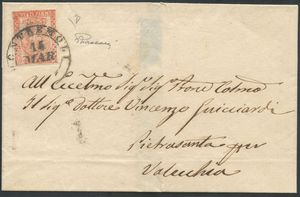 PONTREMOLI
15
MAR
All' Eccelmo Sigr. Sigr. Prone Colmo
Il Sigr. Dottore Vincenzo Guicciardi
Pietrasanta per
Valecchia